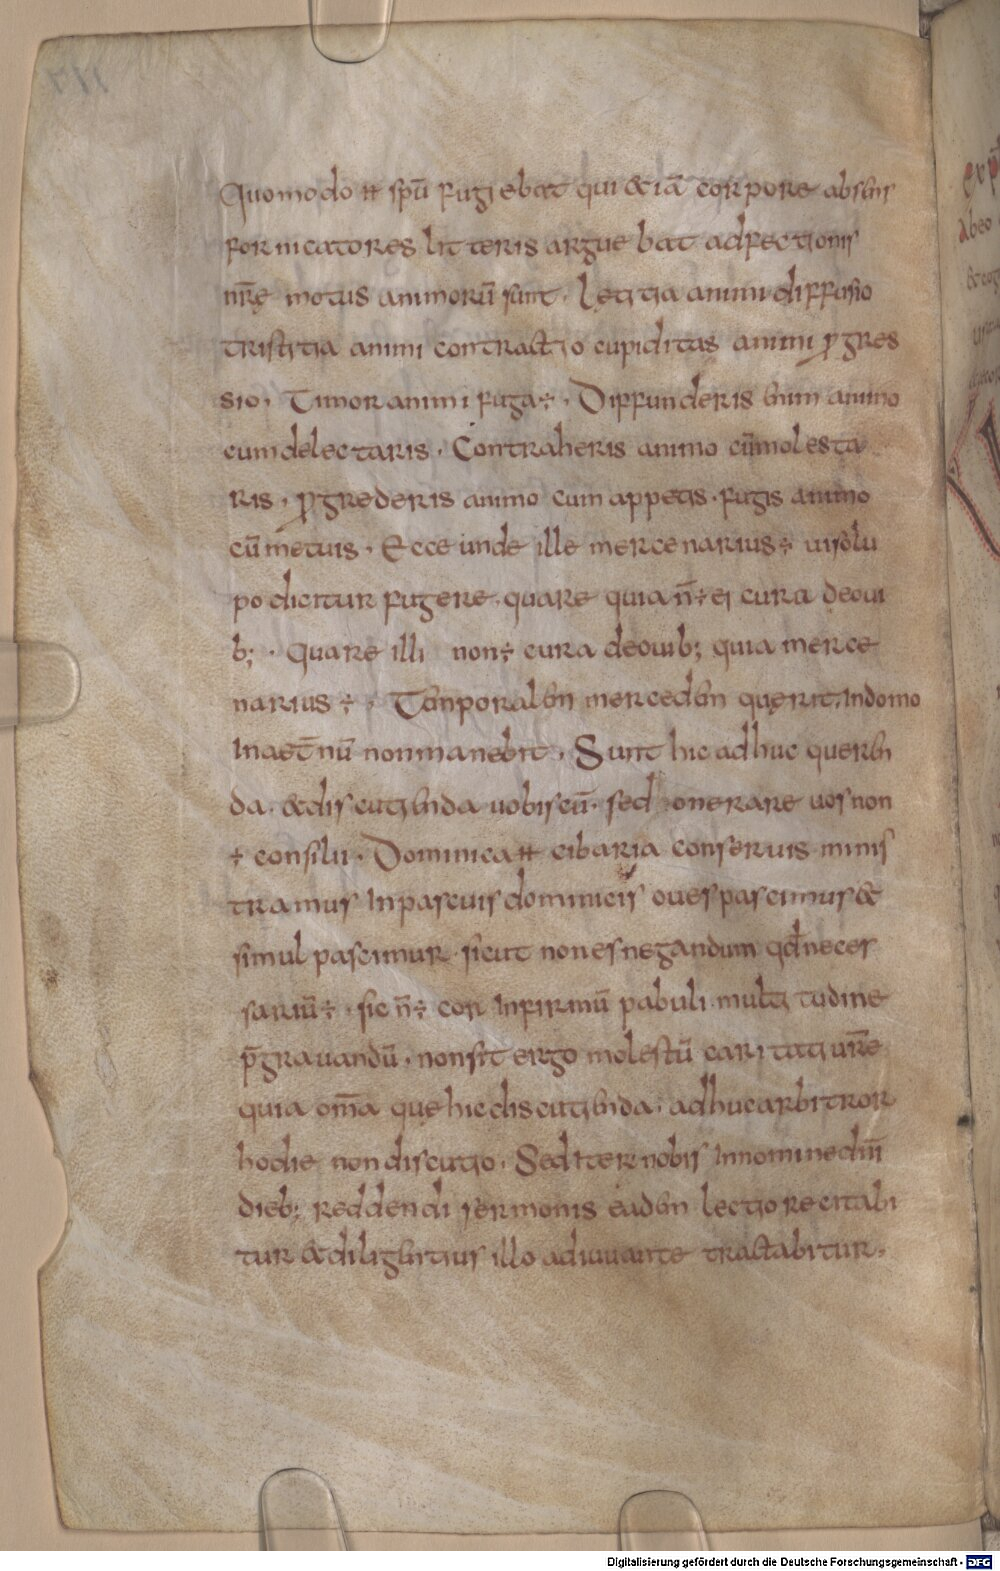 Quomodo ħ spū fugiebat qui &iā corpore absens
fornicatores litteris arguebat adfectionis
nr̄ę motus animorū sunt. Lętitia animi diffusio
tristitia animi contractio cupiditas animi ꝓgres
sio. Timor animi fuga÷. Diffunderis enim animo
cum delectaris. Contraheris animo cū molesta
ris. ꝓgrederis animo cum appetis. fugis animo
cū metuis. Ecce unde ille mercenarius÷ uiso lu
po dicitur fugere. quare quia n̄÷ei cura deoui
b;. Quare illi non÷ cura deouib; quia merce
narius÷. Temporalem mercedem quęrit. In domo
In aet̄nū non manebit. Sunt hic adhuc queren
da. & discutienda uobiscū. sed onerare uos non
÷ consilii. Dominica ħ cibaria conseruis minis
tramus In pascuis dominicis oues pascimus &
simul pascimur. sicut non es negandum qđ neces
sariū÷. sic n̄÷ cor Infirmū pabuli multitudine
p̄grauandū. non sit ergo molestū caritati ur̄e
quia om̄a quę hic discutienda. adhuc arbitror
hodie non discutio. Sed iter nobis In nomine dn̄i
dieb; reddendi sermonis eadem lectio recitabi
tur & diligentius illo adiuuante tractabitur.
Abeo
Digitalisierung gefördert durch die Deutsche Forschungsgemeinschaft - DFG